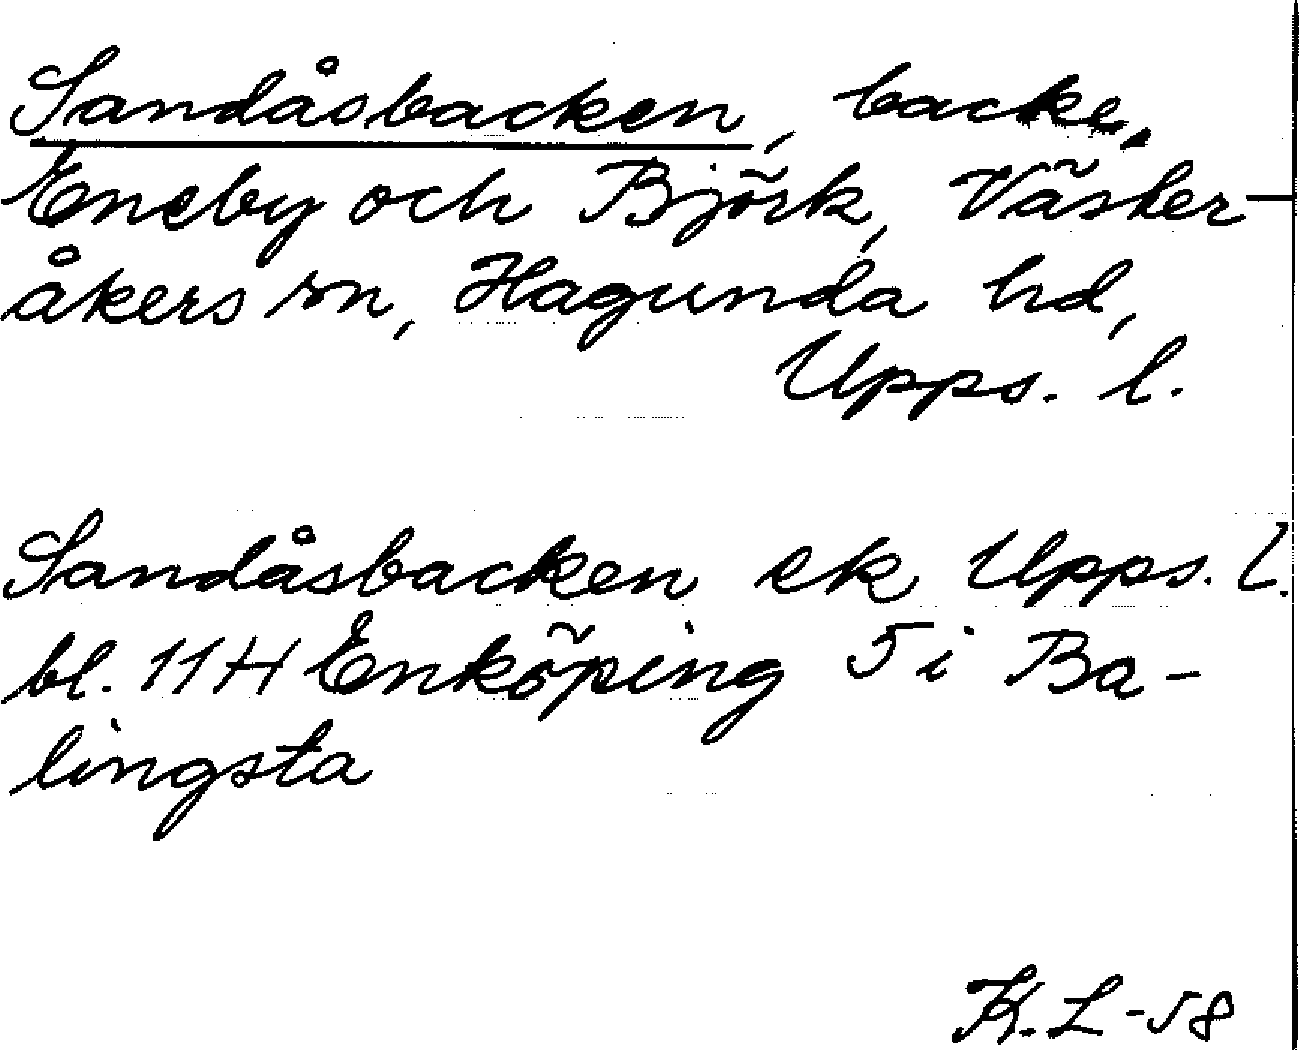 Sandåsbacken, backe,
Eneby och Björk, Väster-
åkers sn, Hagunda hd,
Upps. l.
Sandåsbacken ek Upps. l.
bl. 11H Enköping 5i Ba-
lingsta
K. L -58